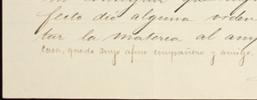 fecto dió alguna orden
tar la materia al amp
casa, quedo suyo afmo compañero y amigo.